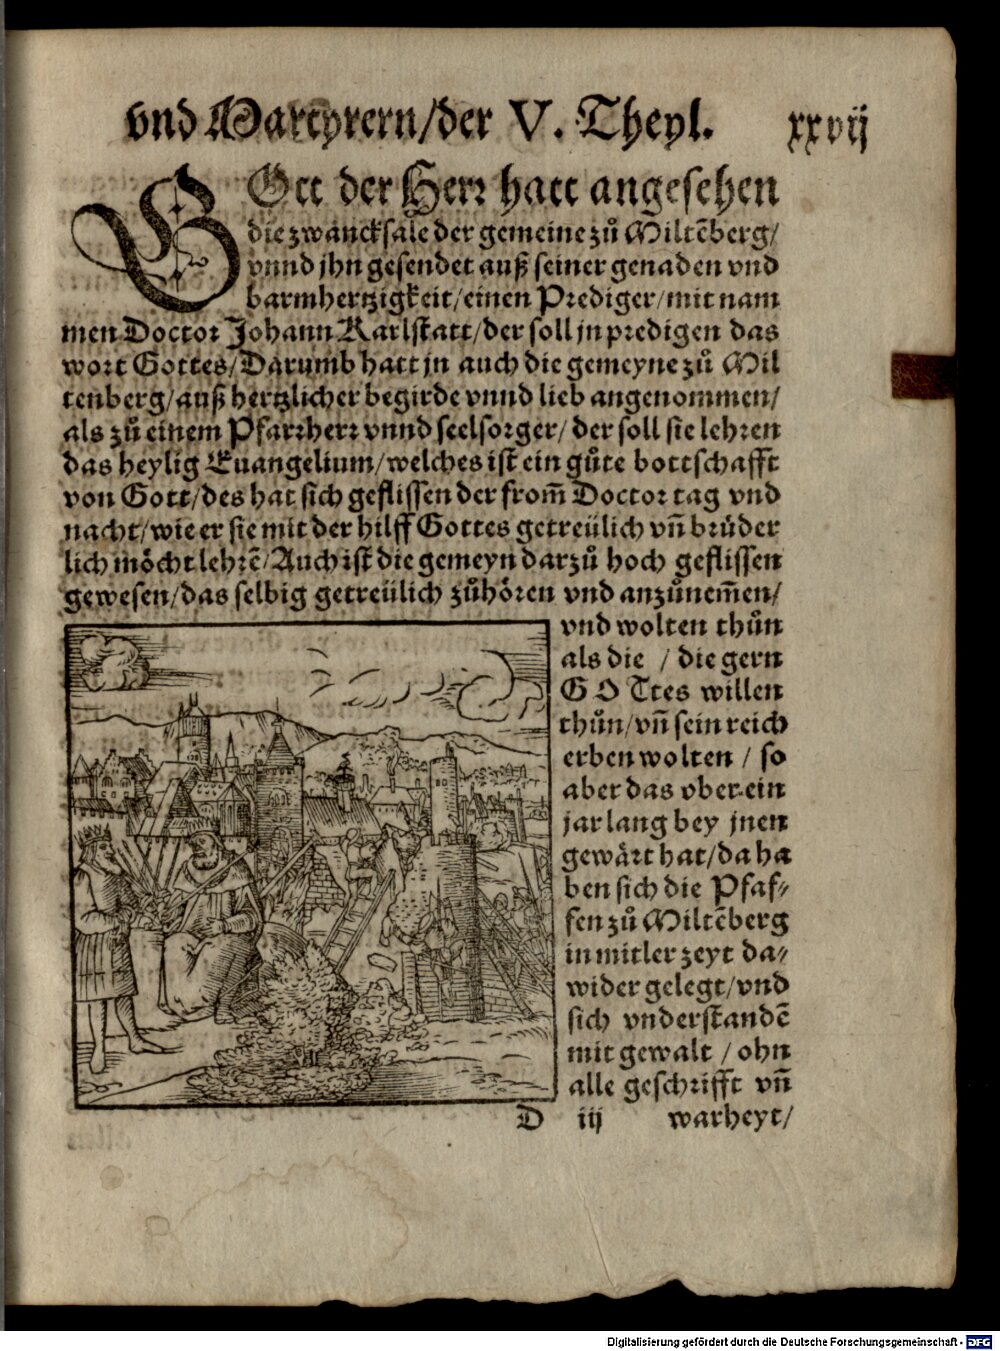 vnd Martyrern/der V. Theyl. xxvij
GOtt der Herr hatt angesehen
die zwancksale der gemeine zů Miltẽberg/
vnnd jhn gesendet auß seiner genaden vnd
barmhertzigkeit/einen Prediger/mit nam
men Doctor Johann Karlstatt/der soll jn predigen das
wort Gottes/Darumb hatt jn auch die gemeyne zů Mil
tenberg/auß hertzlicher begirde vnnd lieb angenommen/
als zů einem Pfarrherr vnnd seelsorger/der soll sie lehren
das heylig Euangelium/welches ist ein gůte bottschafft
von Gott/des hat sich geflissen der from̃ Doctor tag vnd
nacht/wie er sie mit der hilff Gottes getreülich vñ brüder
lich möcht lehrẽ/Auch ist die gemeyn darzů hoch geflissen
gewesen/das selbig getreülich zůhören vnd anzůnem̃en/
vnd wolten thůn
als die / die gern
GOTtes willen
thůn/vñ sein reich
erben wolten / so
aber das vber ein
jar lang bey jnen
gewärt hat/da ha
ben sich die Pfaf⸗
fen zů Miltẽberg
in mitler zeyt da⸗
wider gelegt/vnd
sich vnderstandẽ
mit gewalt / ohn
alle geschrifft vñ
D iij warheyt/
Digitalisierung gefördert durch die Deutsche Forschungsgemeinschaft - DFG